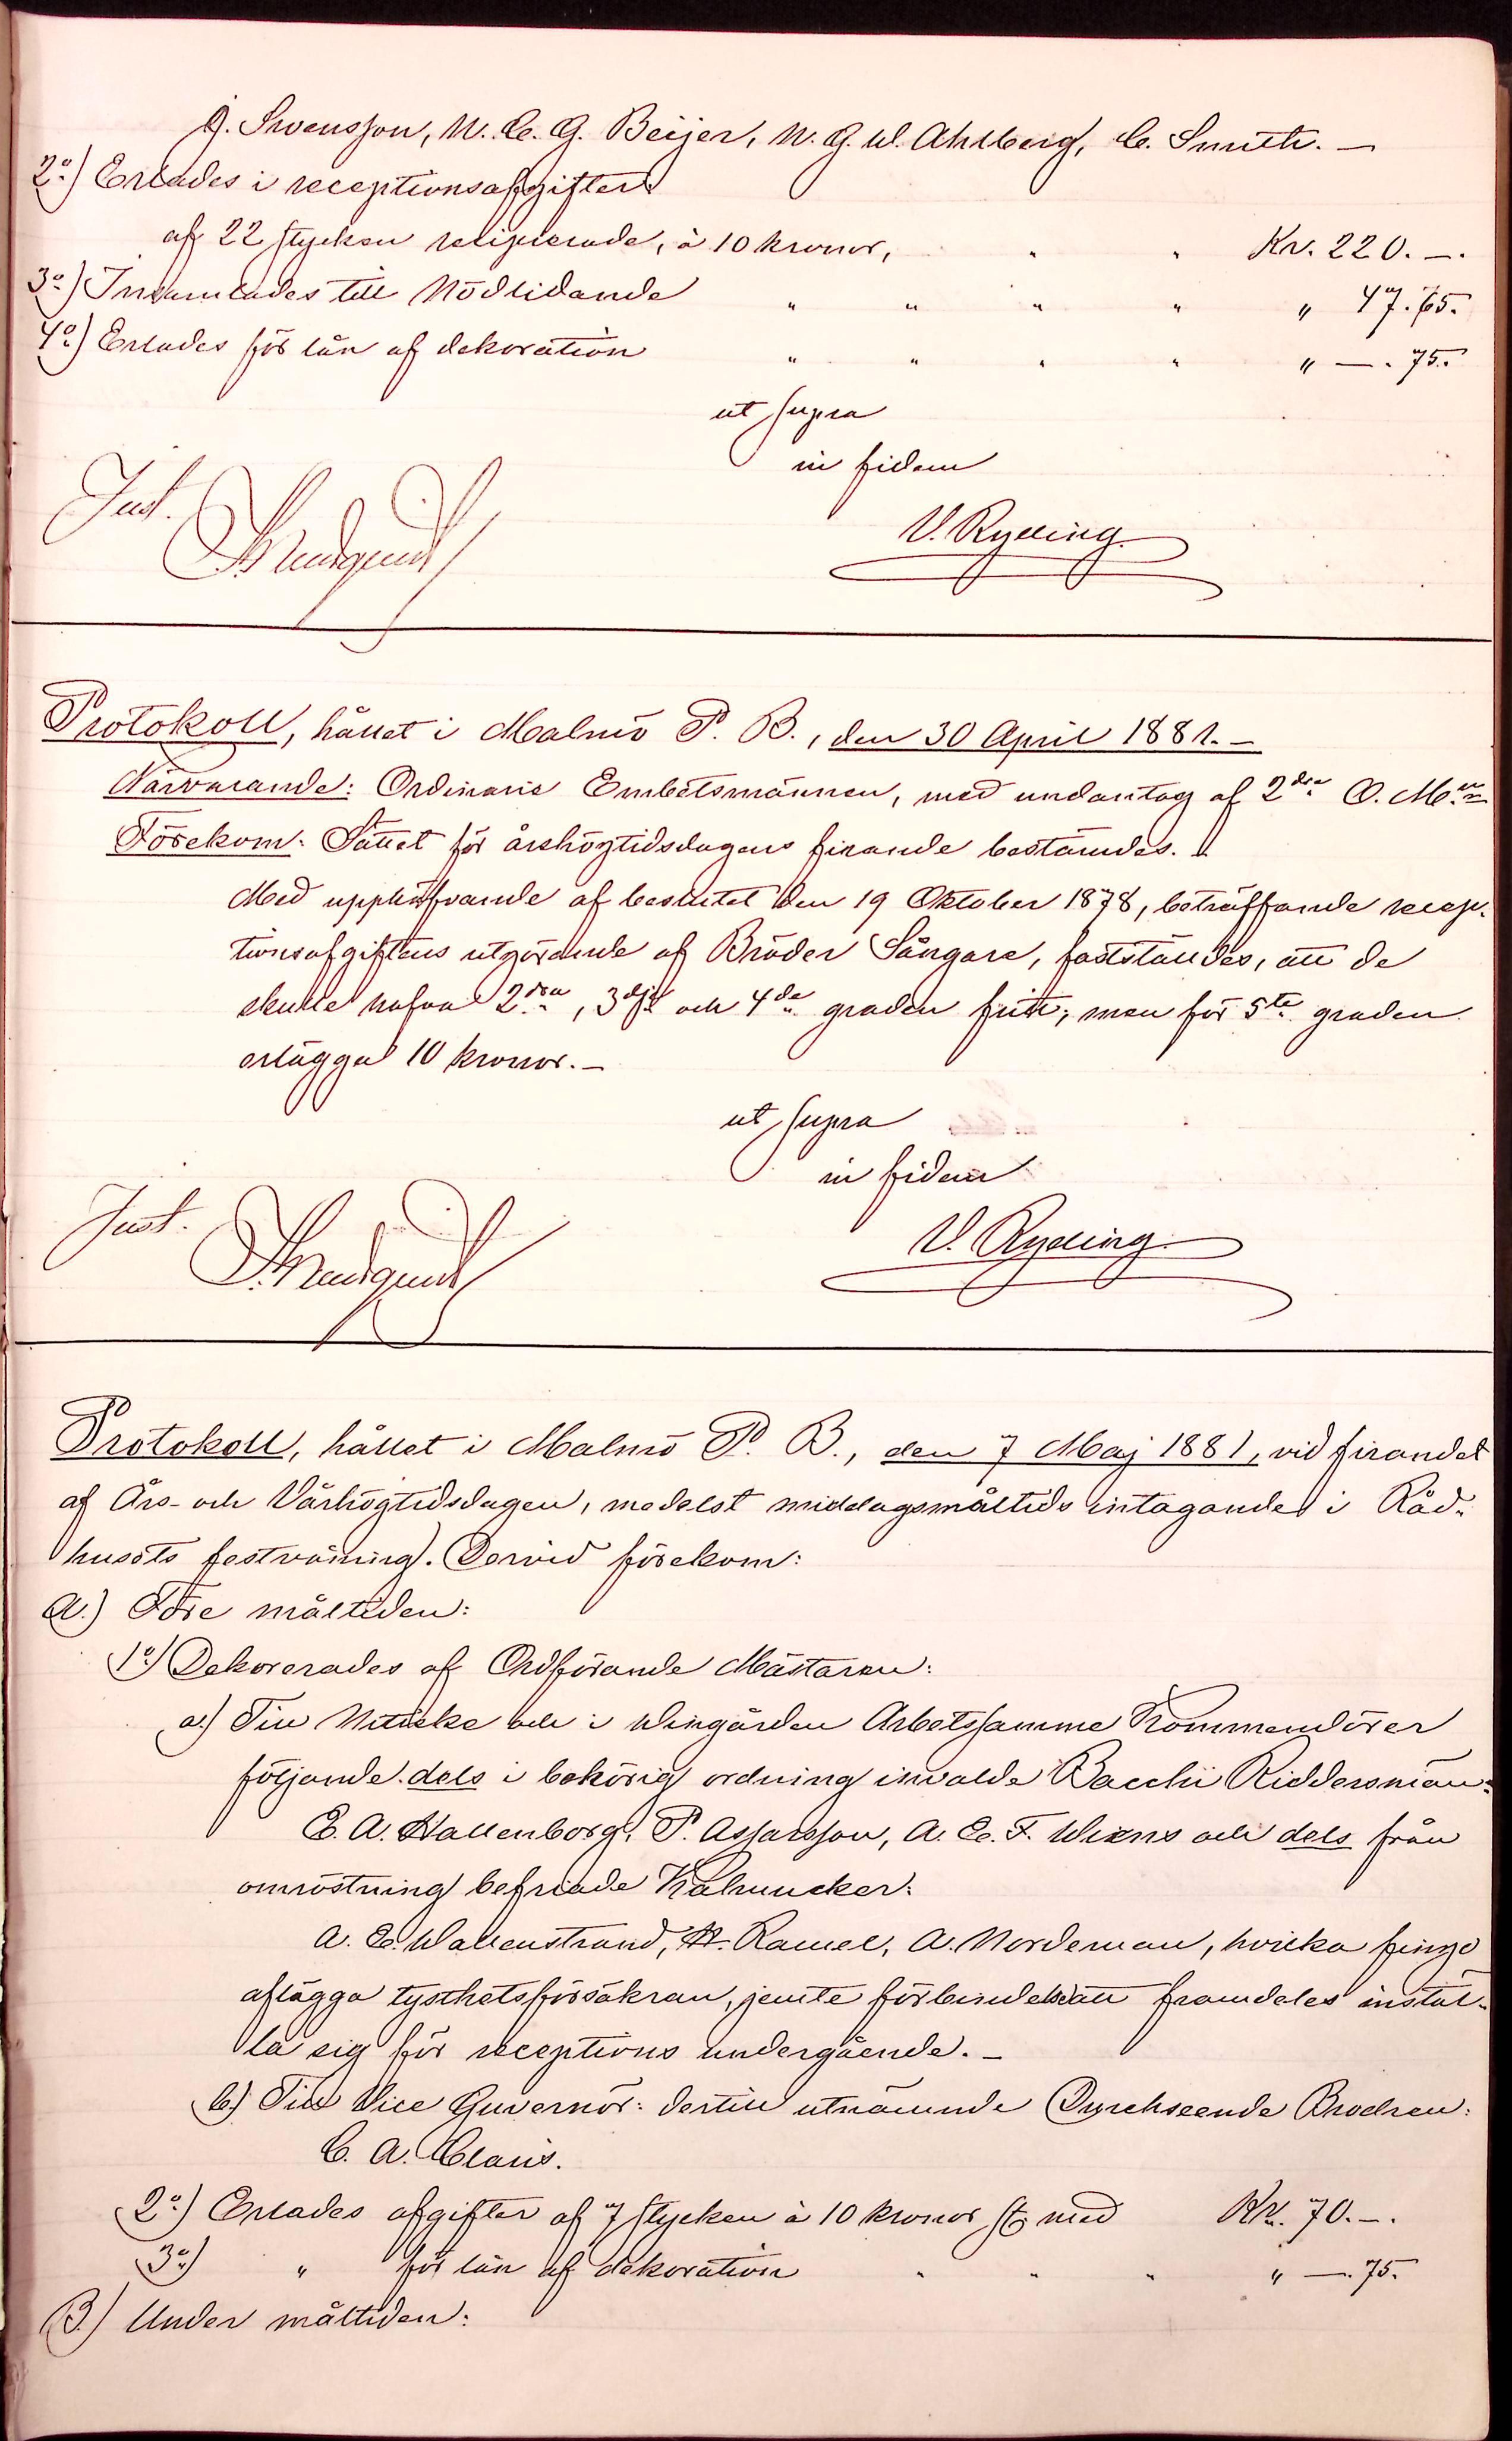 J. Svensson, N. C. G. Beijer, N. G. W. Ahlberg, C. Smith. —
2o) Erlades i receptionsafgifter
af 22 stycken recipierade, à 10 kronor, " " Kr. 220. —.
3o) Insamlades till Nödlidande " " " " " 47. 65.
4o) Erlades för lån af dekoration " " " " " —. 75.
ut supra
in fidem
Just.
V. Ryding
Protokoll, hållet i Malmö P. B., den 30 April 1881. —
Närvarande: Ordinarie Embetsmännen, med undantag af 2dra O. Mn
Förekom: Sättet för årshögtidsdagens firande bestämdes.
Med upphäfvande af beslutet den 19 Oktober 1878, beträffande recep-
tionsafgiftens utgörande af Bröder Sångare, fastställdes, att de
skulle hafva 2dra, 3dje och 4de graden fritt, men för 5te graden
erlägga 10 kronor. —
ut supra
in fidem
Just.
V. Ryding
Protokoll, hållet i Malmö P. B., den 7 Maj 1881, vid firandet
af Års- och Vårhögtidsdagen, medelst middagsmåltids intagande i Råd-
husets festvåning. Dervid förekom:
A.) Före måltiden:
1o) Dekorerades af Ordförande Mästaren:
a.) Till Nitiske och i Vingården Arbetssamme Kommendörer
följande dels i behörig ordning invalde Bacchi Riddersmän:
E. A. Hallenborg, P. Assarsson, A. E. F. Wiens och dels från
omröstning befriade
A. E. Wallenstrand, H. Ramel, A. Nordeman, hvilka fingo
aflägga tysthetsförsäkran, jemte förbindelse att framdeles instäl-
la sig för receptions undergående. —
b.) Till Vice Guvernör: dertill utnämnde Durchseende Brodren:
C. A. Claus.
2o) Erlades afgifter af 7 stycken à 10 kronor st med Kr. 70. —.
3o) " för lån af dekoration " " " " —. 75.
B.) Under måltiden: